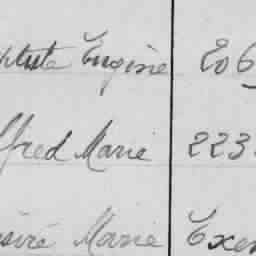 ptiste Eugène 206
lfred Marie 223
ésiré Marie Exem